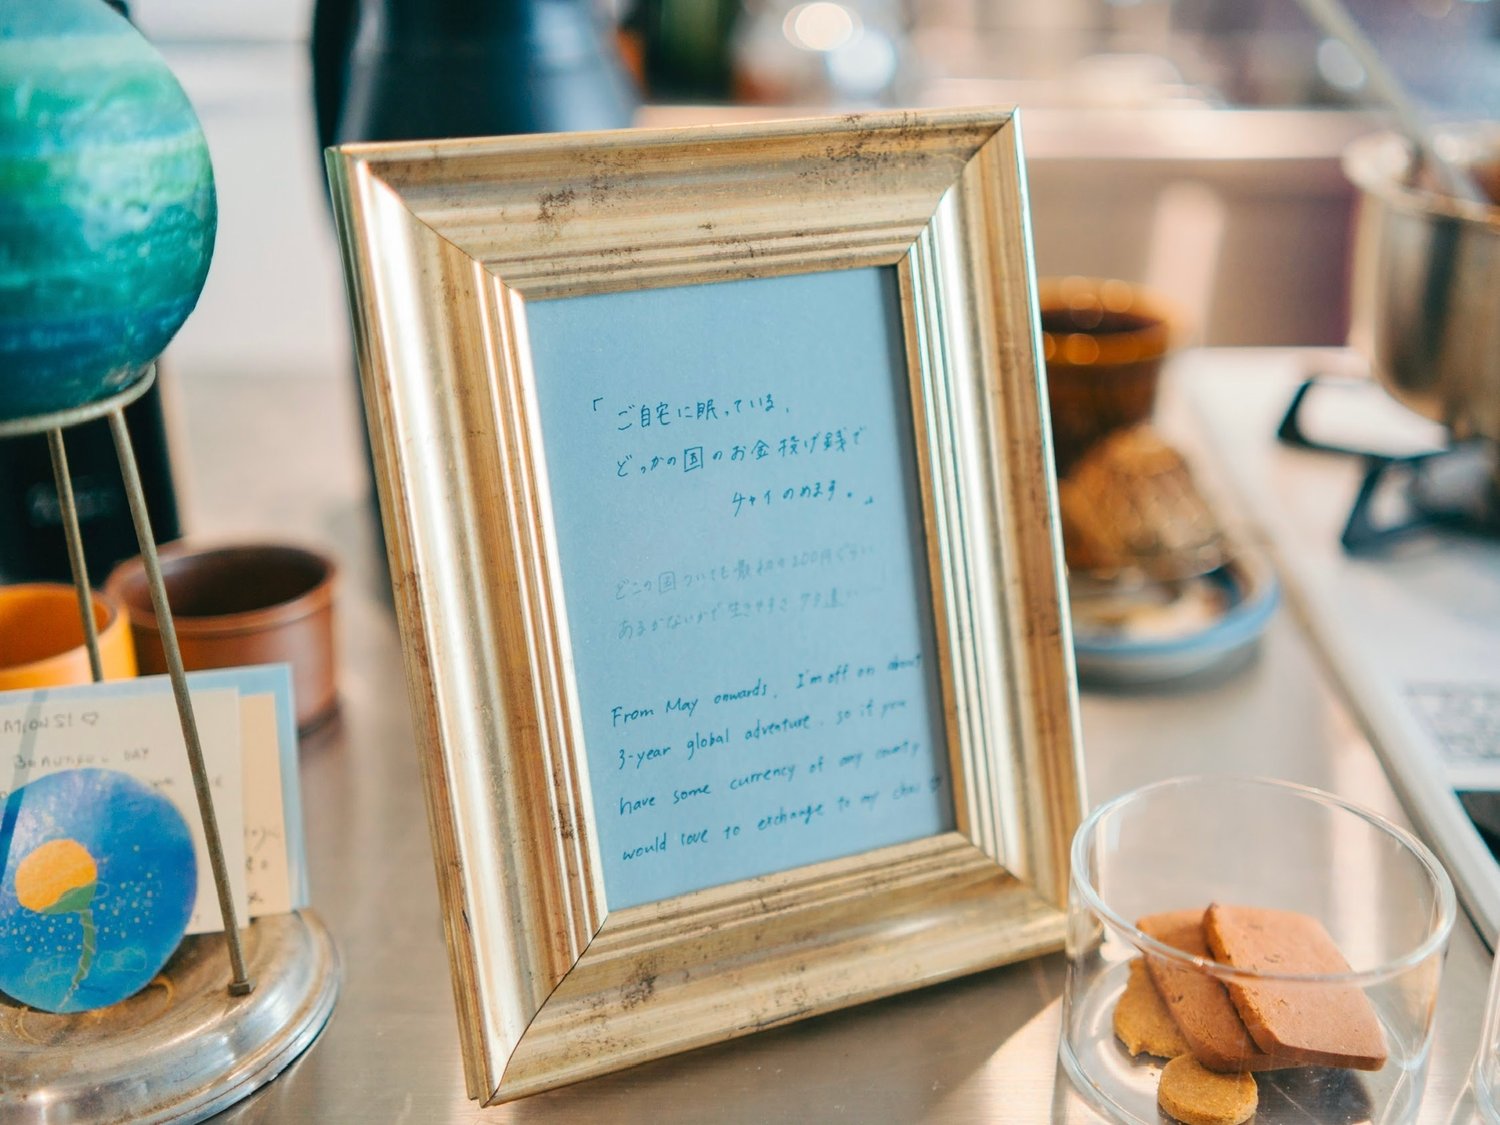 「ご自宅に眠っている、
どっかの国のお金投げ銭で
チャイのめます。」
どこの国ついても最初の200円ぐらい
あるかないかで生きやすさ
From May onwards, I'm off on about
3-year global adventure, so if you
have some currency of any county
would love to exchange to my chai ♡
ATIONS! ♡
DAY